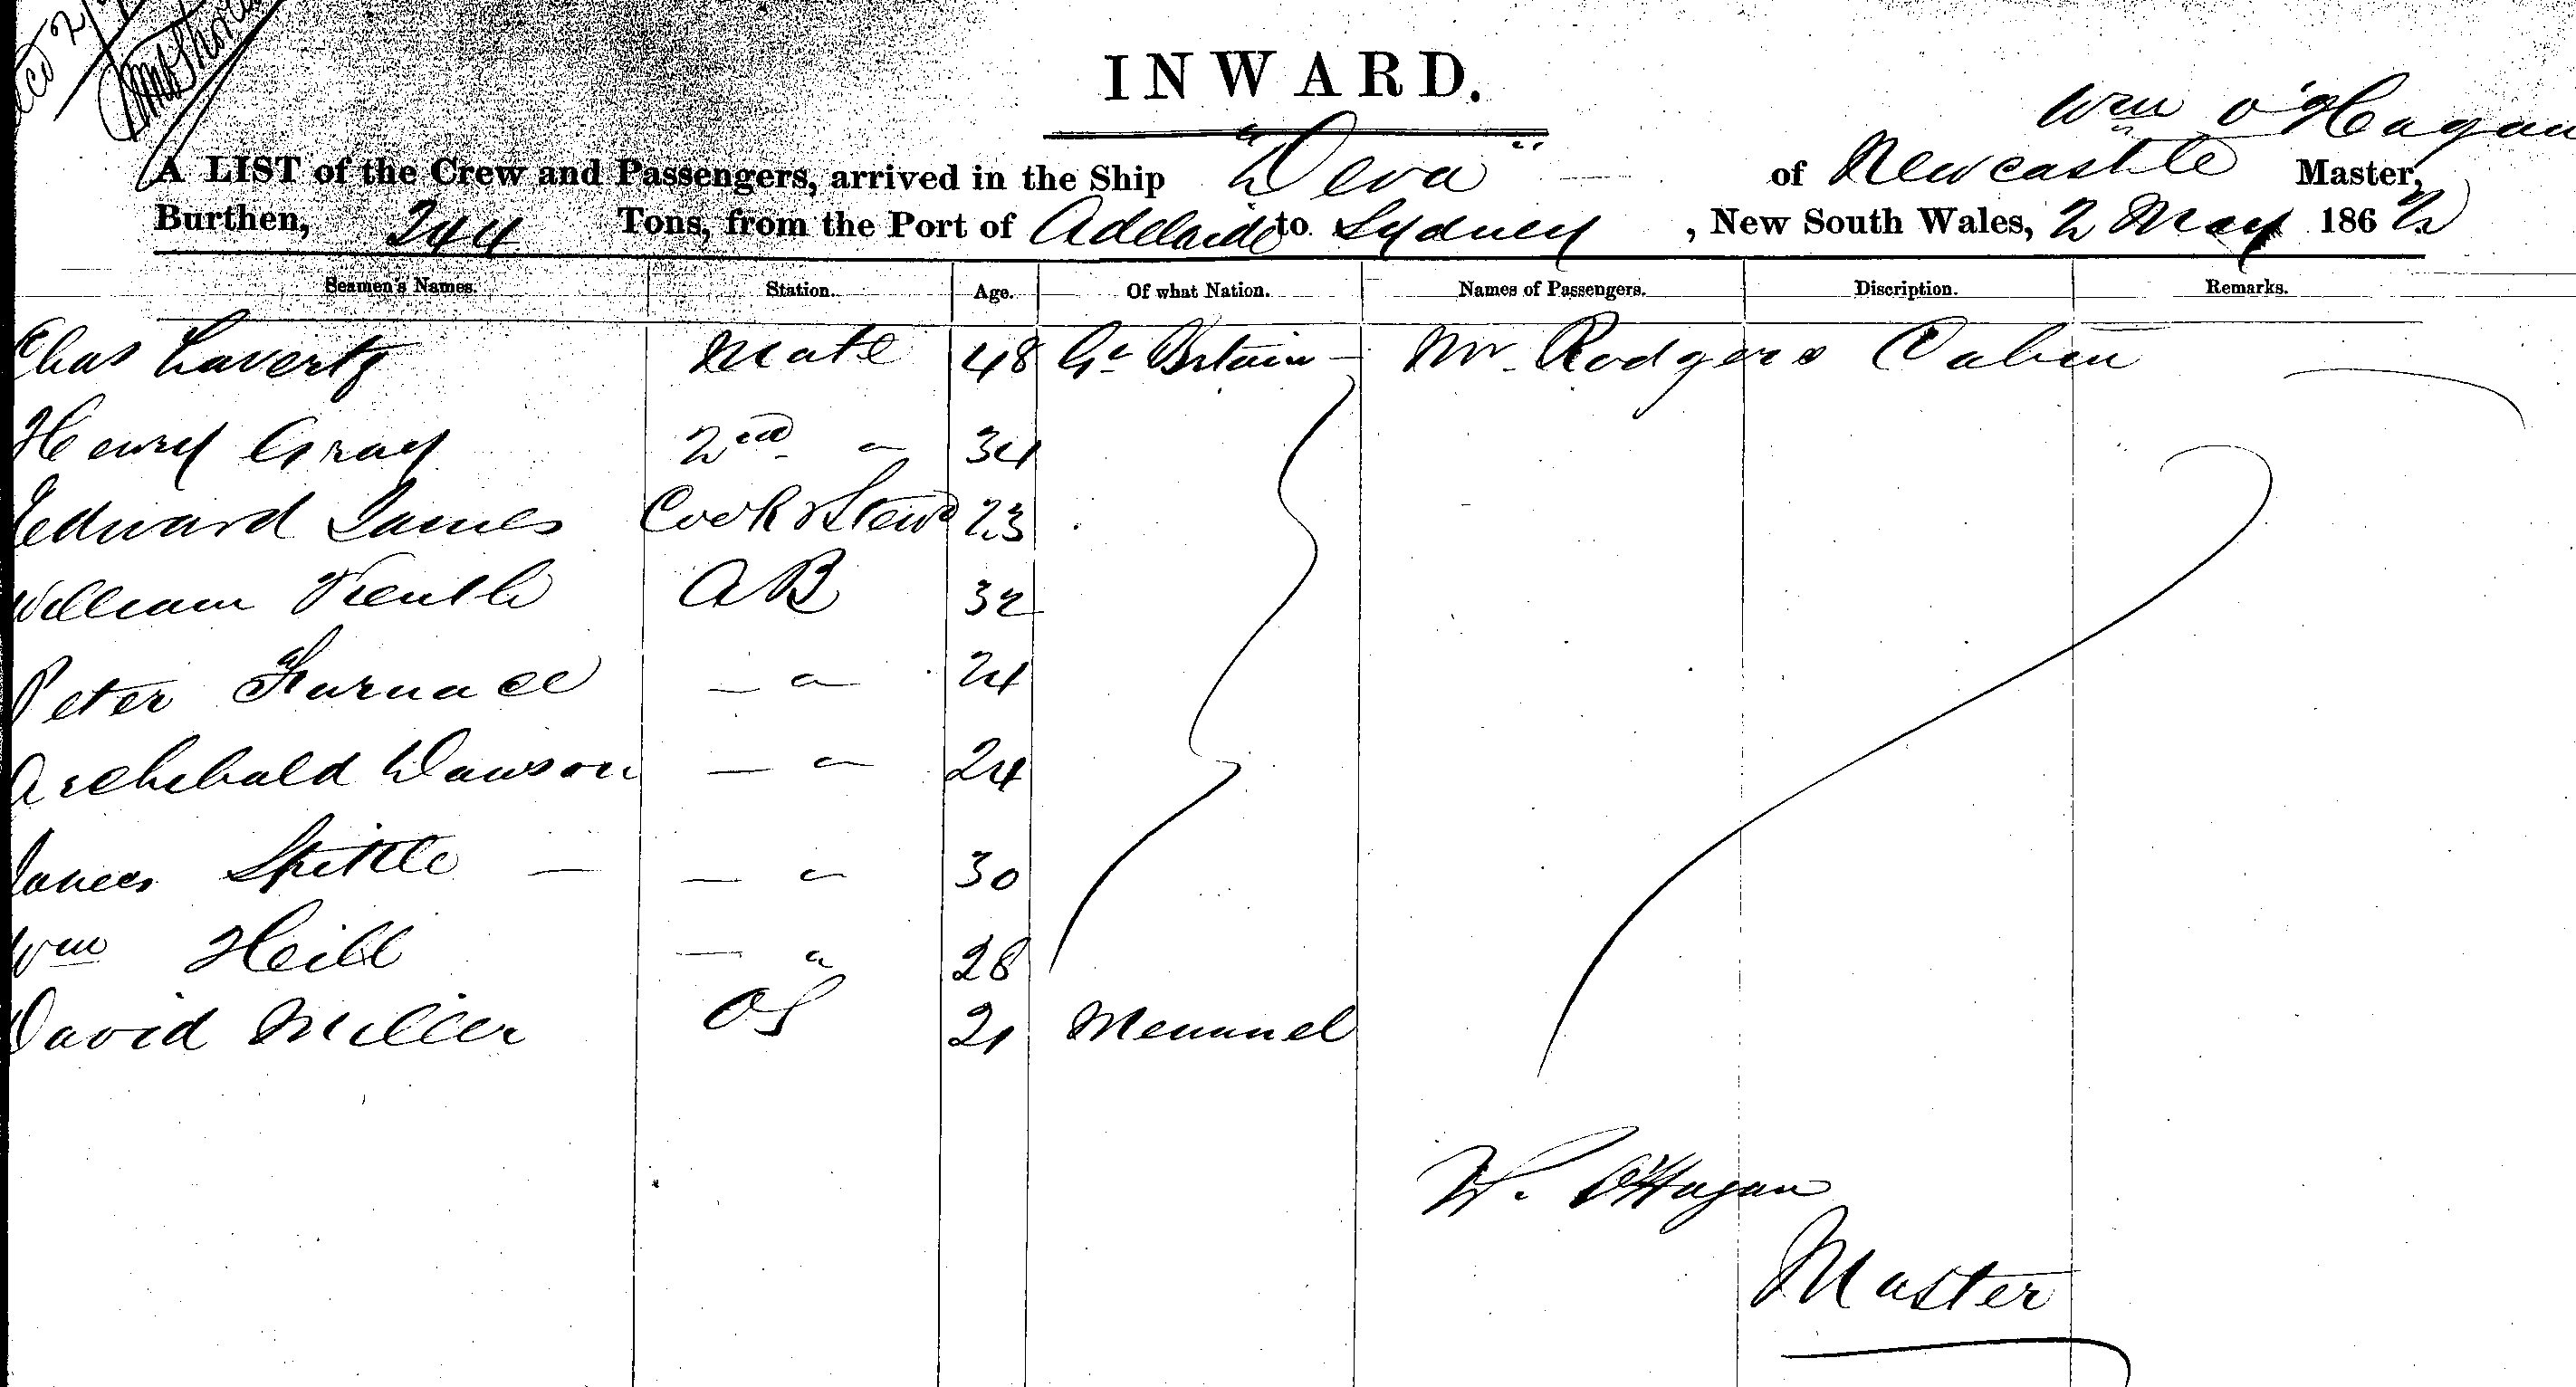 INWARD.
Wm O'Hagan
A LIST of the Crew and Passengers, arrived in the Ship "Deva" of Newcastle Master,
Burthen, 244 Tons, from the Port of Adelaide to Sydney, New South Wales, 2 May 1862
Seamen's Names. Station. Age. Of what Nation. Names of Passengers. Discription. Remarks.
Chas Laverty Mate 48 Gt Britain Mr Rodgers Cabin
Henry Gray 2nd " 34
Edward James Cook & Stewd 23
William AB 32
Peter Furnace — " 24
Archibald Dawson — " 24
James Spittle — — " 30
Wm Heill — " 28
David Miller OS 21
W. O'Hagan
Master